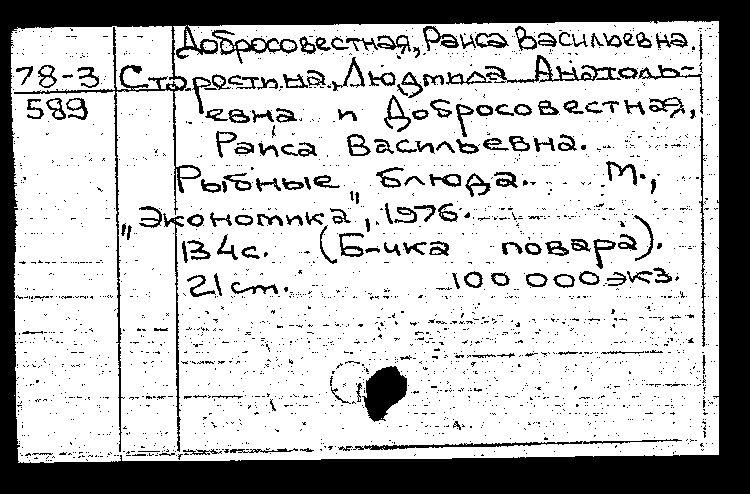 Добросовестная, Раиса Васильевна.
78-3 Старостина, Людмила Анатоль-
589 евна и Добросовестная,
Раиса Васильевна.
Рыбные блюда. М.,
"Экономика", 1976.
134с. (Б-чка повара).
21 cm. 100 000 экз.